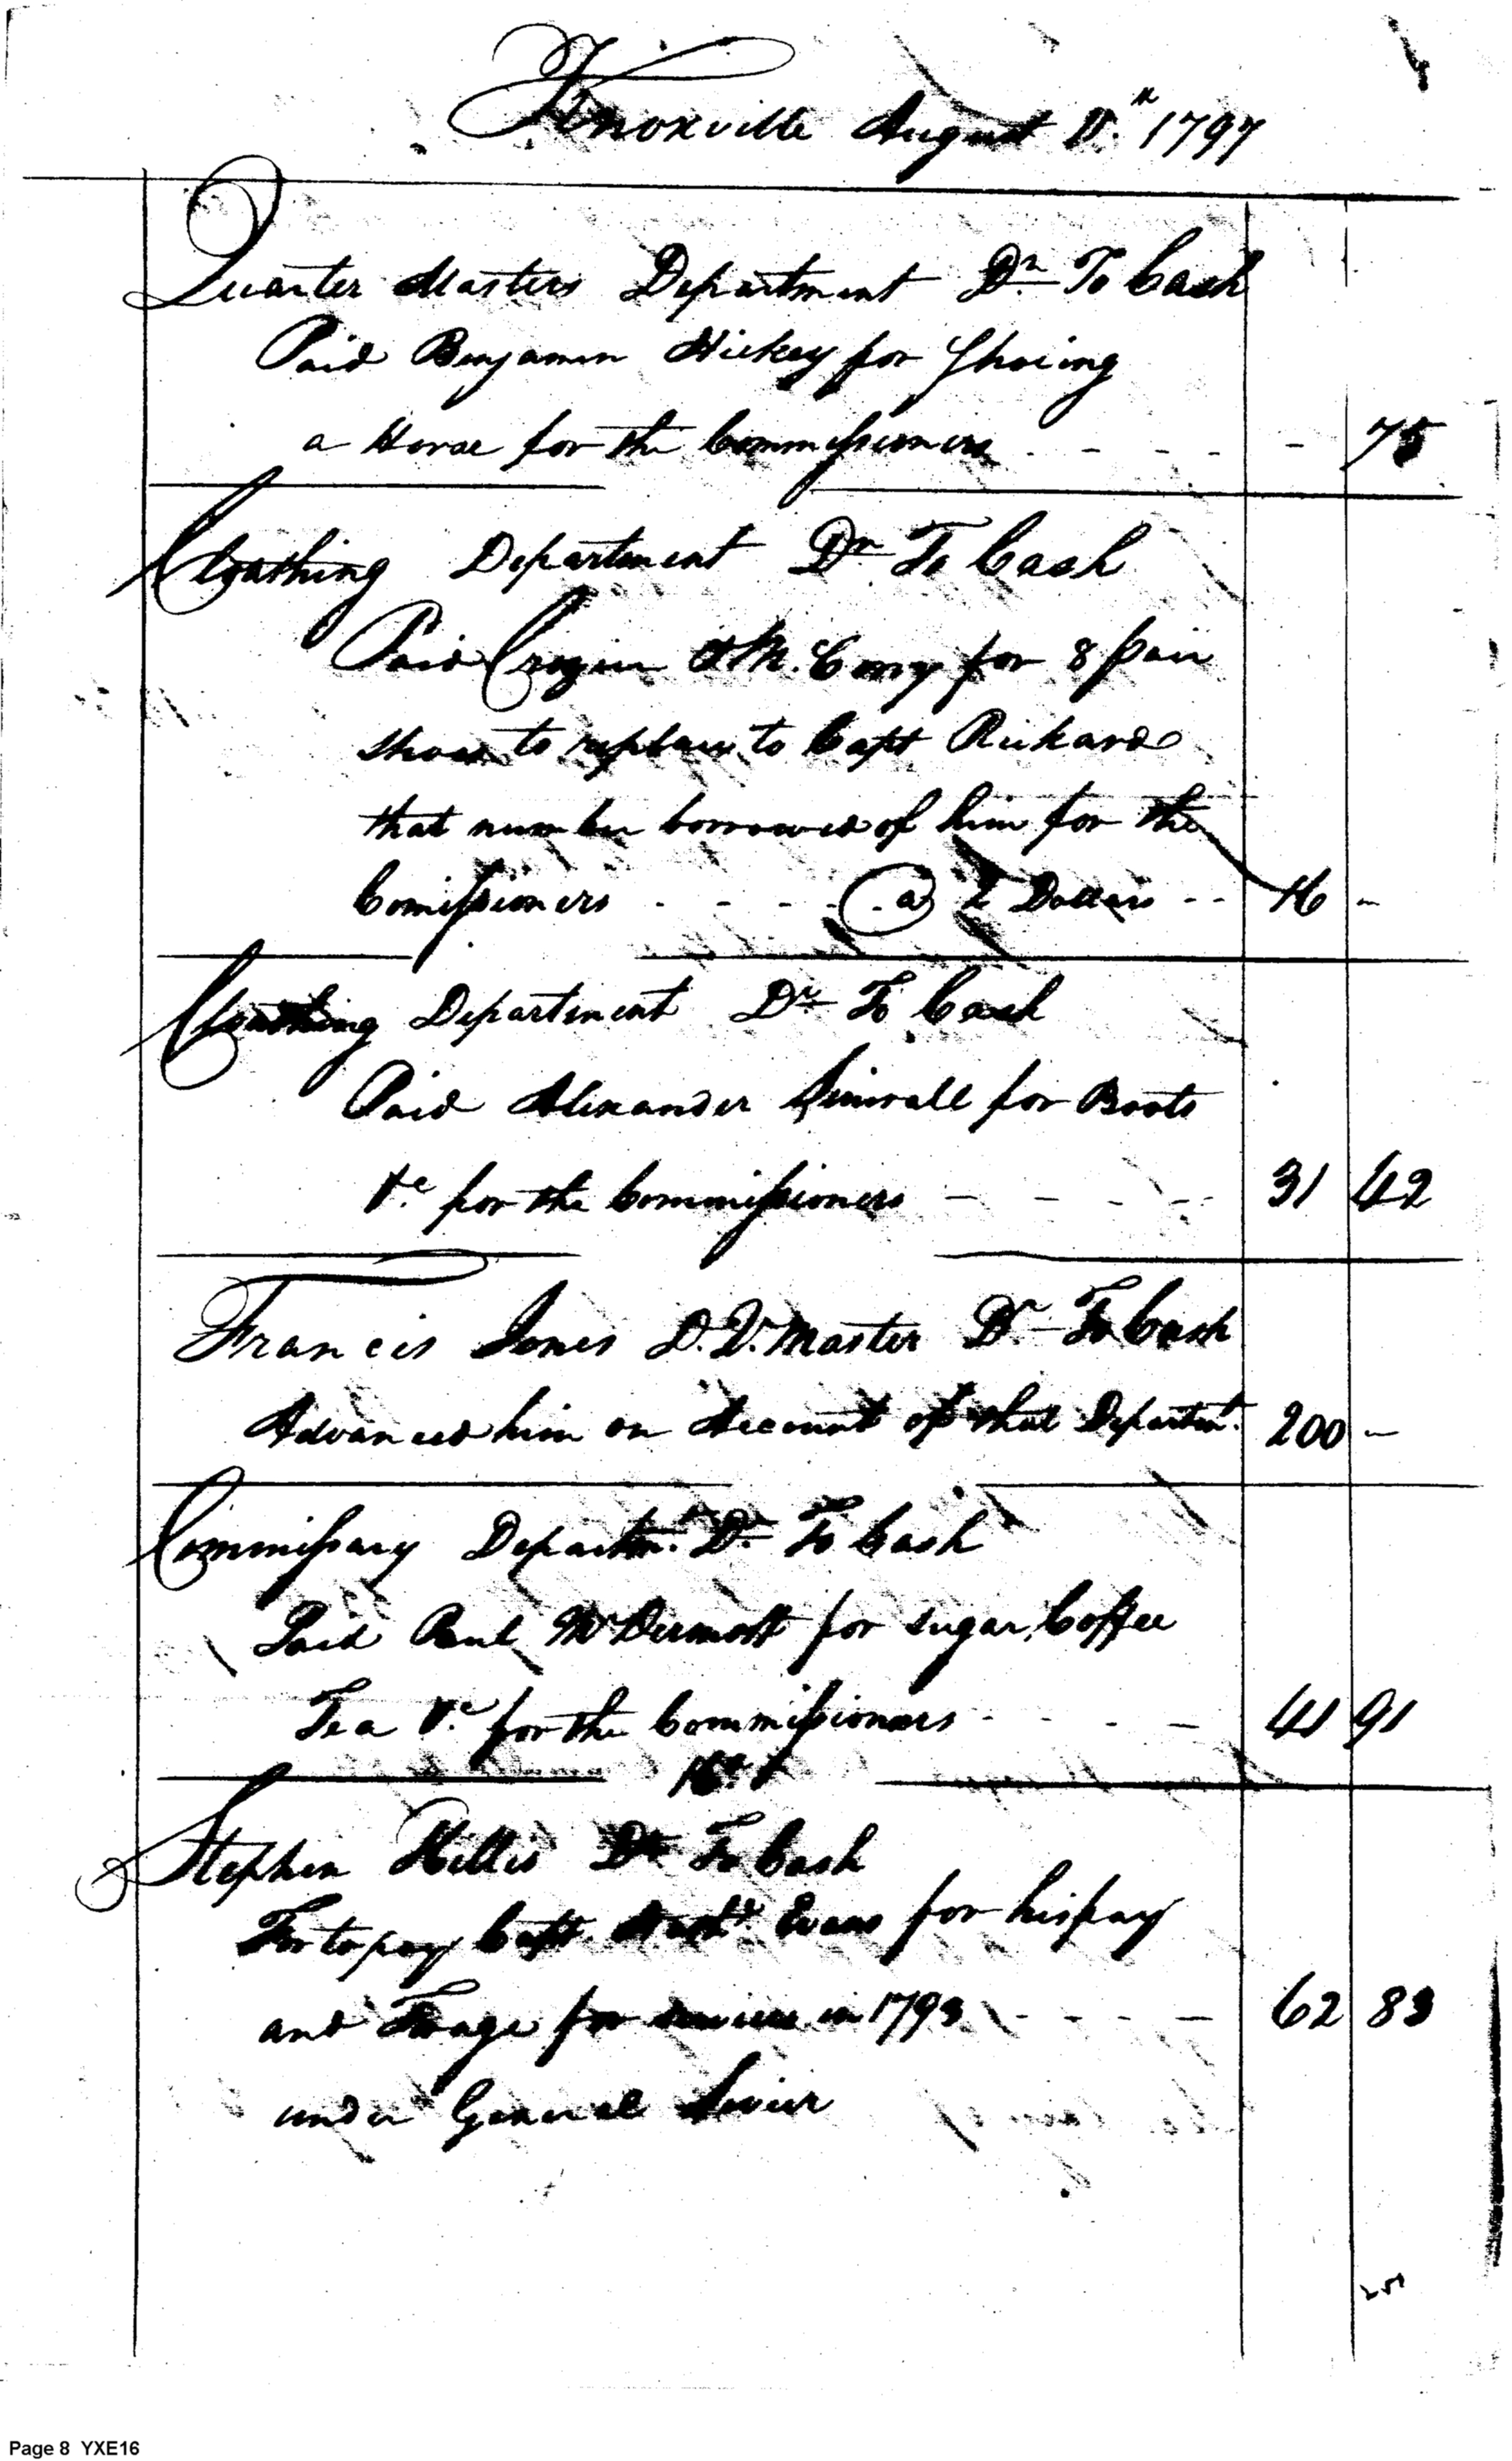 Knoxville August 1797
Quarter Masters Department Dr. To Cash
Paid Benjamin Hickey for Shoeing
a Horse for the Commissioners - - - - 75
Cloathing Department Dr To Cash
Paid Crozier & McCorry for 8 pair
Shoes to replace to Capt Rickard
that number borrowed of him for the
Comissioners - - - - @ 2 Dollars - - 16 -
Cloathing Department Dr. To Cash
Paid Alexander Simrall for Boots
&c. for the Commissioners - - - - 31 42
Francis Jones D. Q. Master Dr. To Cash
Advanced him on Account of that Departmt. 200 -
Commissary Departmt. Dr. To Cash
Paid Paul McDermott for sugar, Coffee
Tea &c. for the Commissioners - - - - 41 91
Stephen Hillis Dr To Cash
For to pay Capt. Evans for his pay
and Forage for services in 1793 - - - - 62 83
under General Sevier
Page 8 YXE16